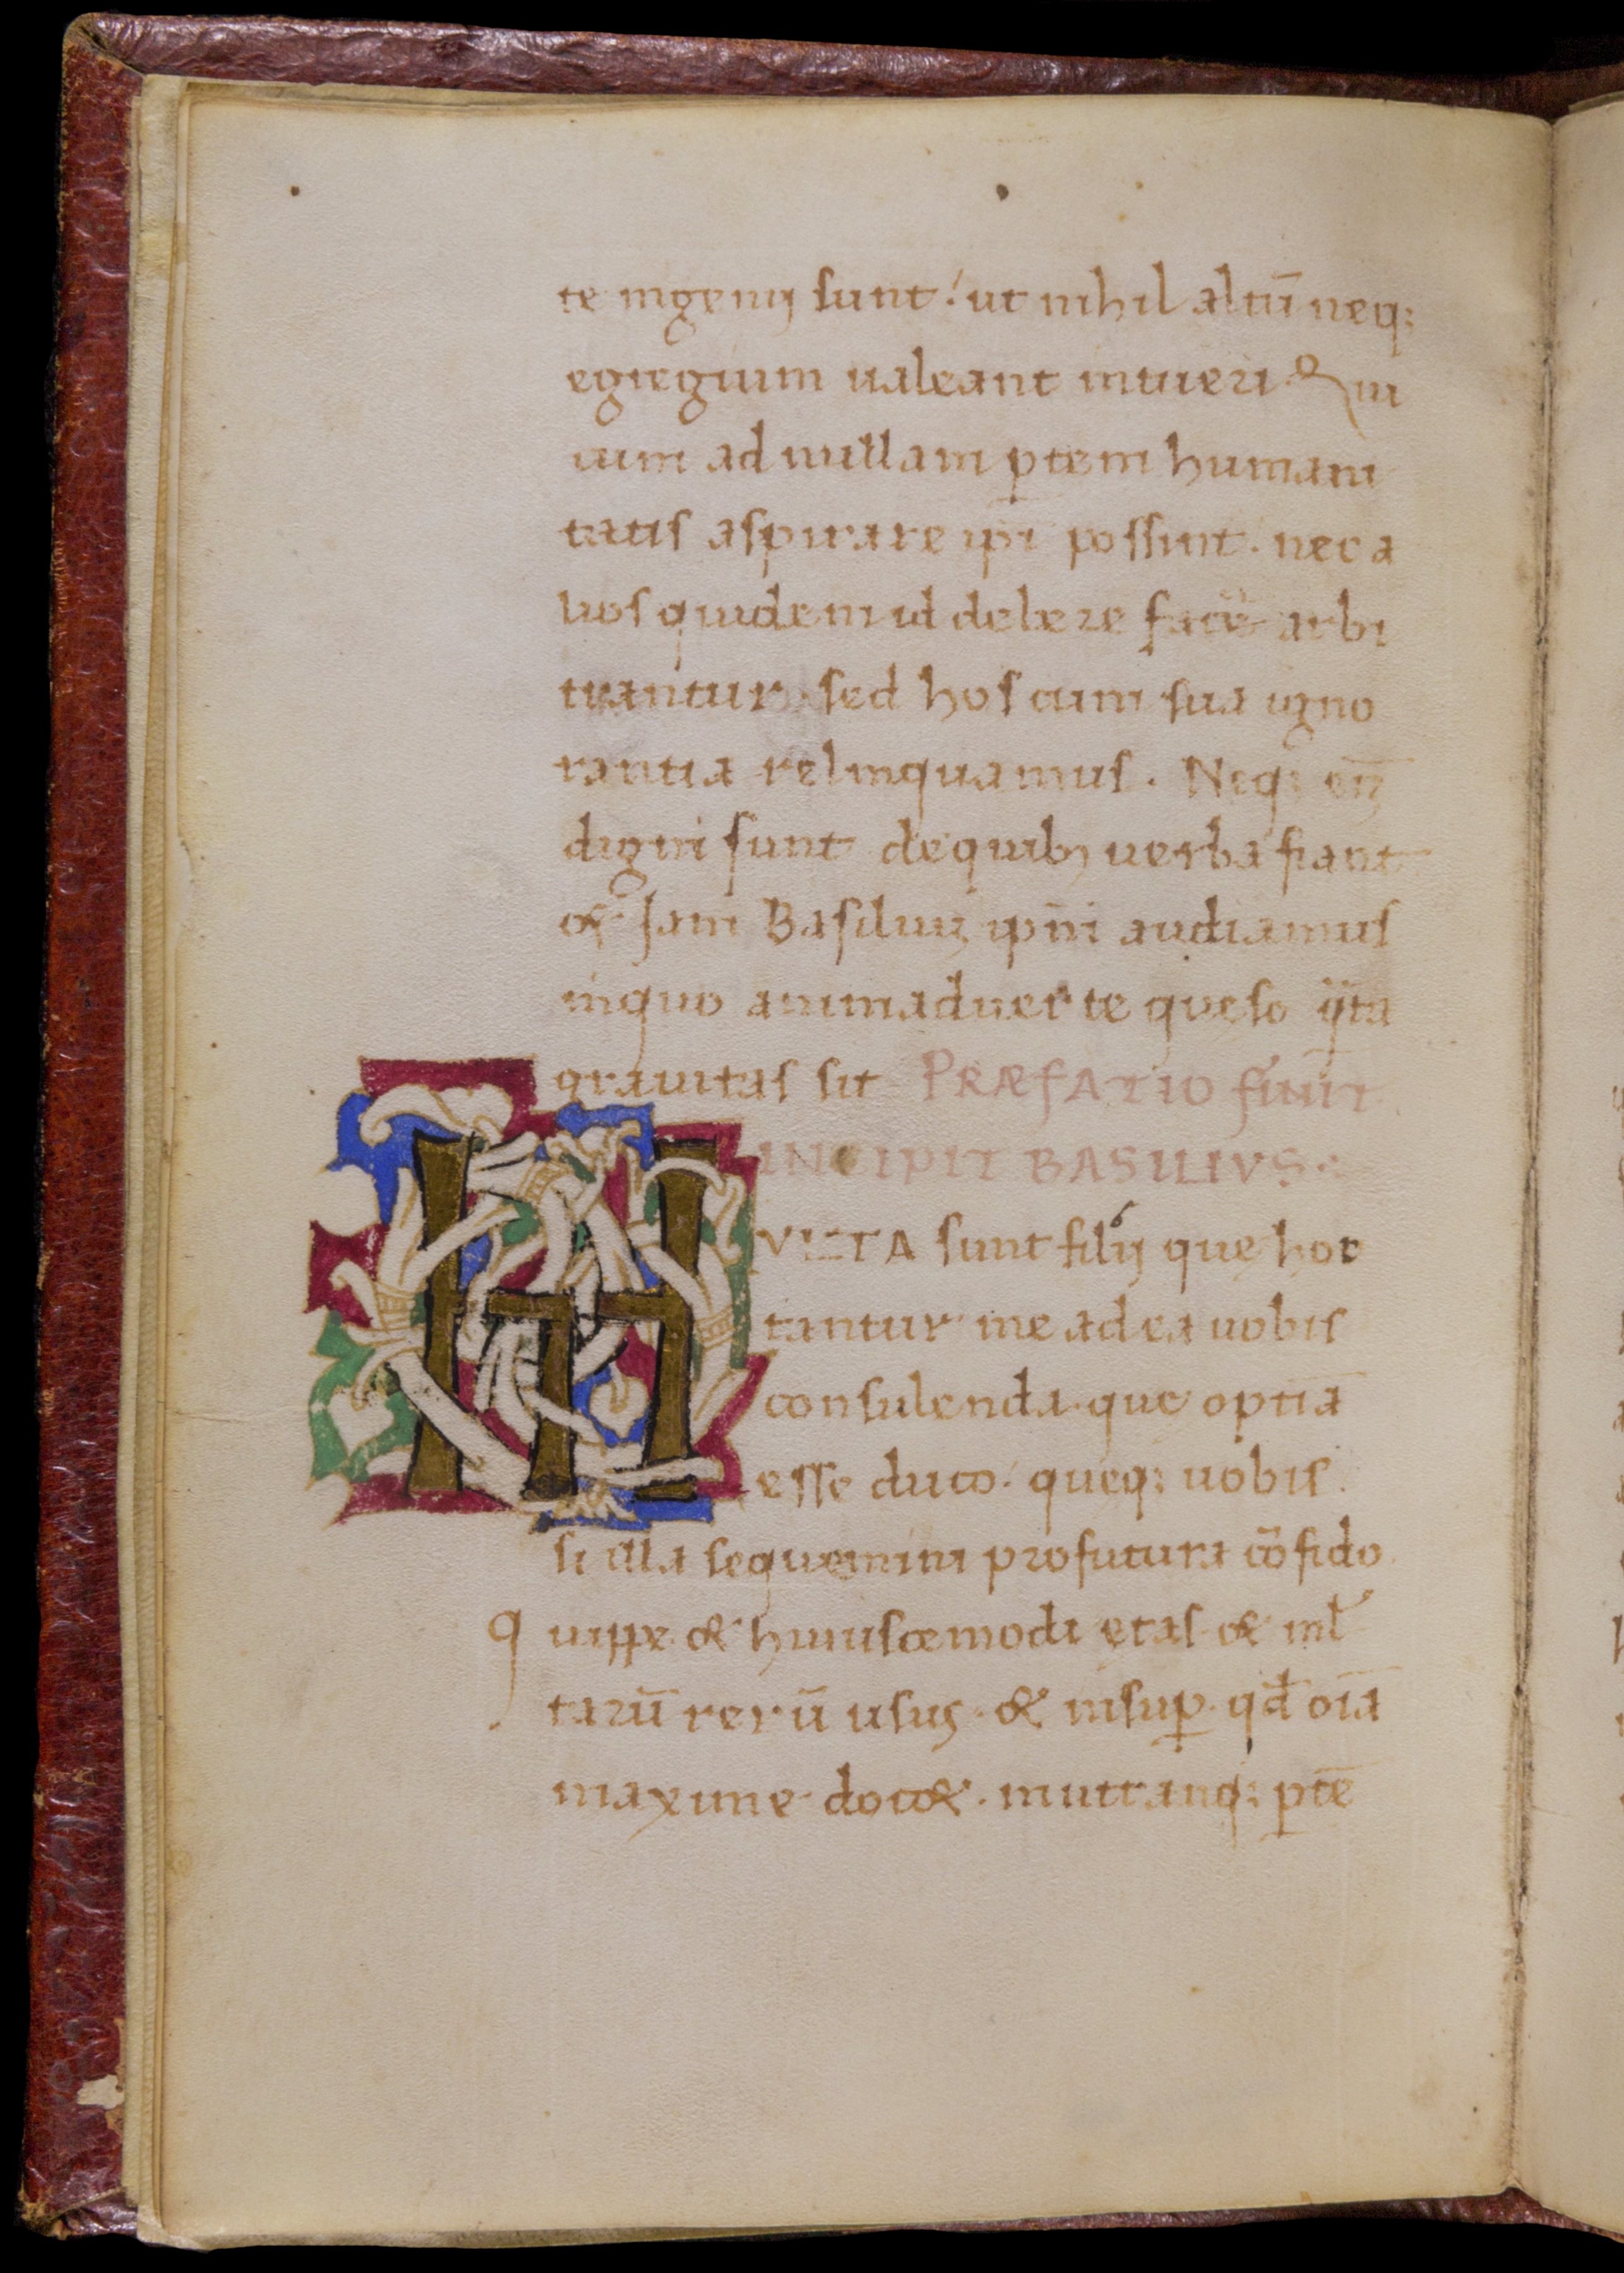 te ingenij sunt: ut nihil altū neq;
egregium ualeant intueri. Qui
uim ad nullam ꝑtem humani
tatis aspirare ip̄i possint. nec a
lios quidem id debere facẽ arbi
trantur. sed hos cum sua igno
rantia relinquamus. Neq; eñ
digni sunt de quibꝫ uerba fiant
& Jam Basiliuꝫ ip̄m audiamus
in quo animaduerte queso q̈ta
grauitas sit PRÆFATIO finit
INCIPIT BASILIVS.
MVLTA sunt filij que hor
tantur me ad ea uobis
consulenda. que optīa
esse duco: queq; uobis.
si illa sequemini profutura cōfido.
quippe & huiuscemodi etas. & ml̃
tarū rerū usuꝫ. & insuꝑ. qd̄ oīa
maxime docet. mutranq; ꝑtē